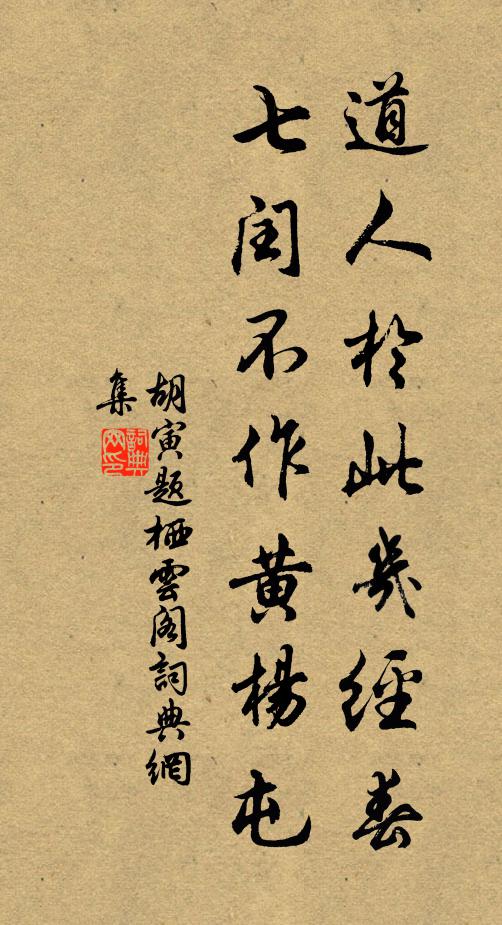 道人於此幾經春
七閏不作黃楊屯
胡寅題栖雲閣詞典網
集
詞典網印